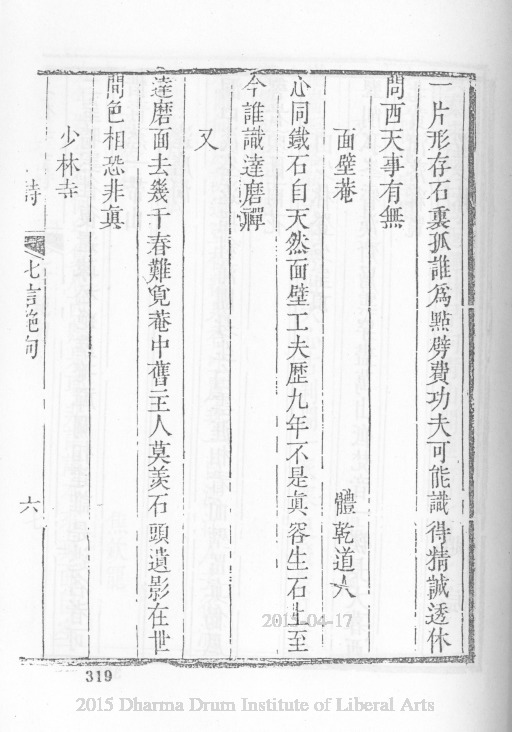 一片形存石裏孤誰爲點劈費功夫可能識得精誠透休
問西天事有無
面壁菴 體乾道人
心同鐵石自天然面壁工夫歷九年不是眞容生石上至
今誰識達磨禪
又
達磨面去幾千春難覓菴中舊主人莫羨石頭遺影在世
間色相恐非眞
少林寺
詩 七言絶句 六
319
2015-04-17
2015 Dharma Drum Institute of Liberal Arts